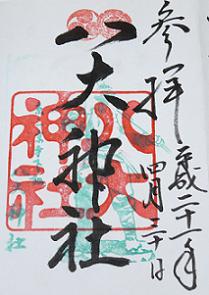 参拝
平成二十一年
四月三十日
八大神社
八大
神社